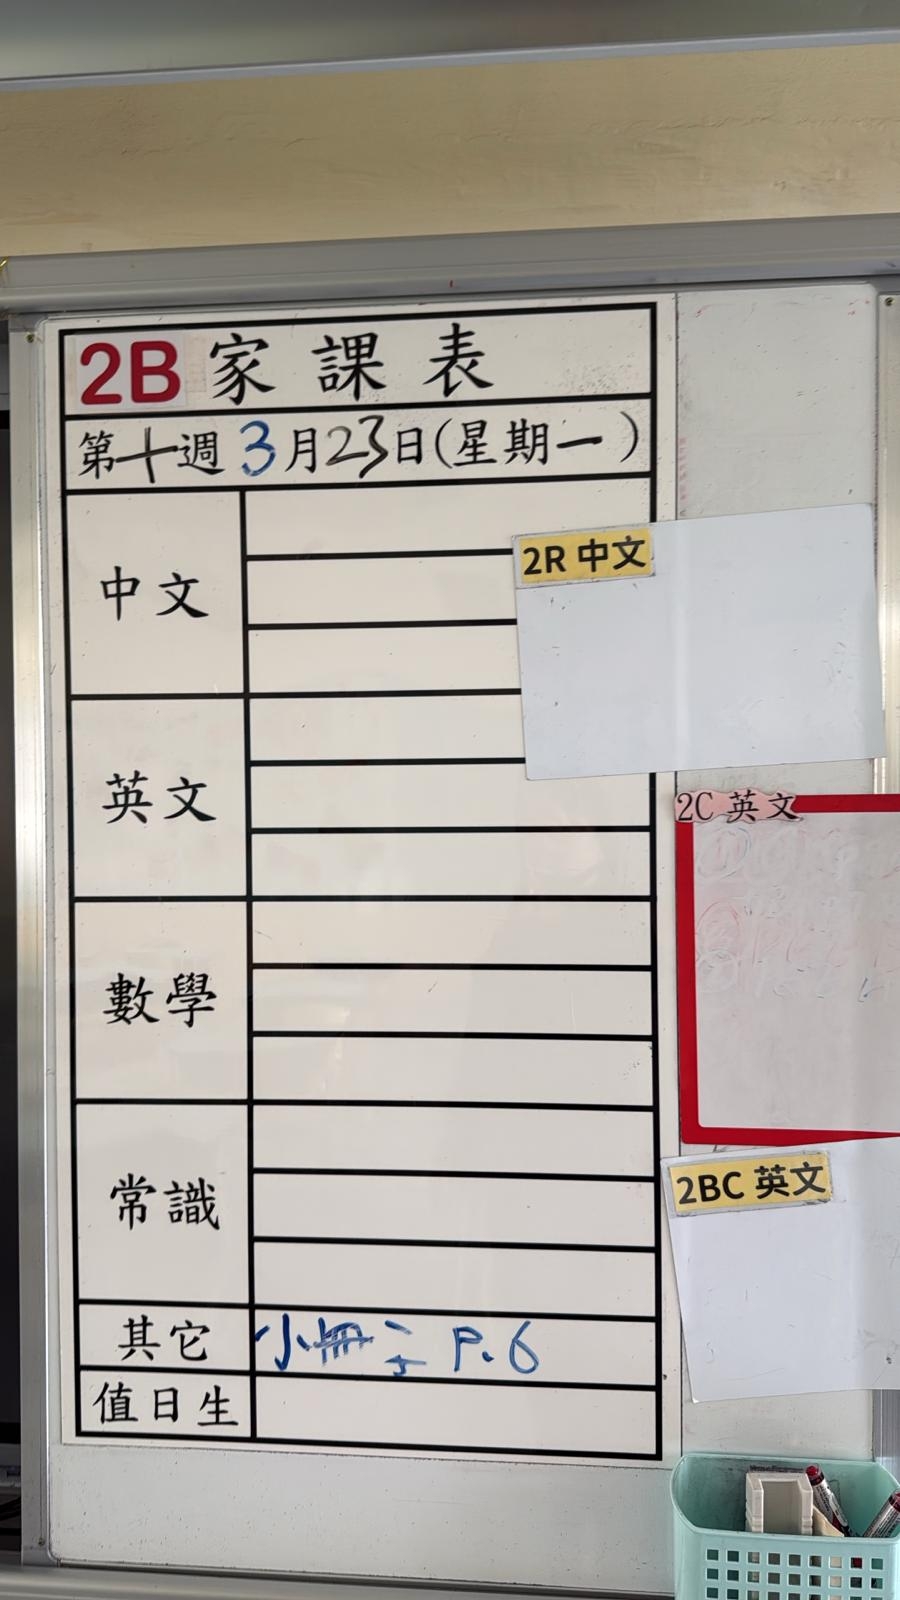 2B 家課表
第十週 3月23日(星期一)
中文
2R 中文
英文
2C 英文
數學
2BC 英文
常識
其它 小冊子 P.6
值日生